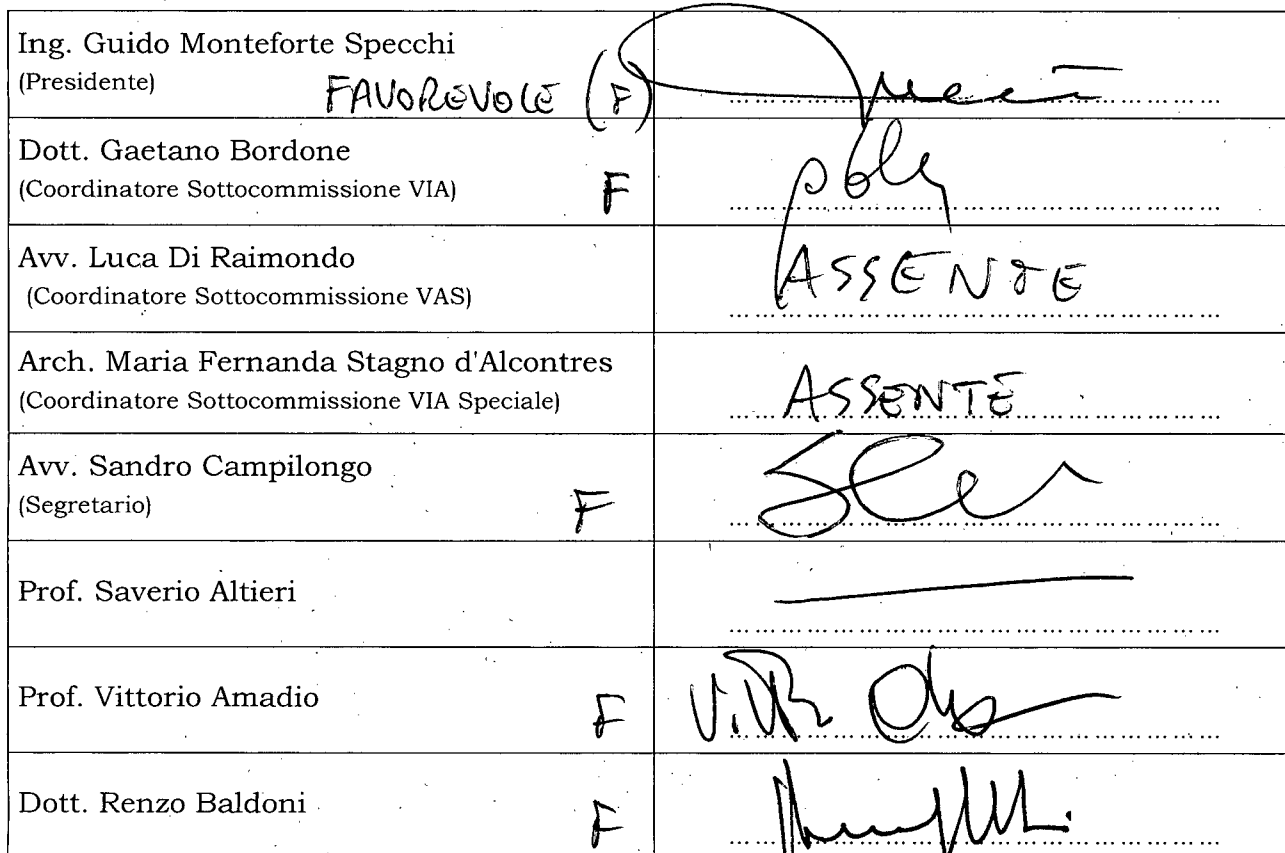 Ing. Guido Monteforte Specchi
(Presidente)
FAVOREVOLE (F)
Dott. Gaetano Bordone
(Coordinatore Sottocommissione VIA)
F
Avv. Luca Di Raimondo
(Coordinatore Sottocommissione VAS)
ASSENTE
Arch. Maria Fernanda Stagno d'Alcontres
(Coordinatore Sottocommissione VIA Speciale)
ASSENTE
Avv. Sandro Campilongo
(Segretario)
F
Prof. Saverio Altieri
Prof. Vittorio Amadio
F
Dott. Renzo Baldoni
F